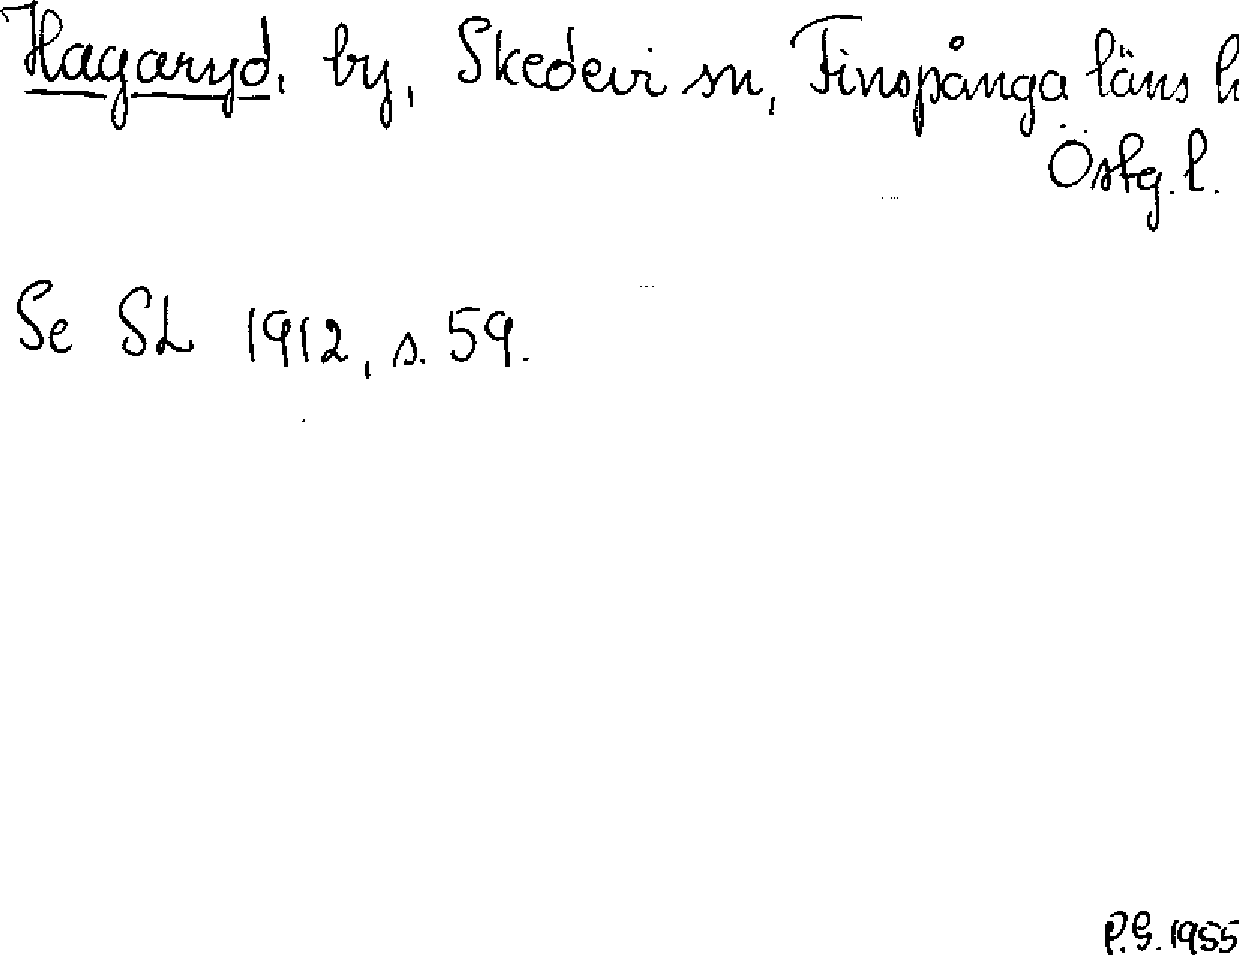 Hagaryd, by, Skedevi sn, Finspånga läns h
Östg. l.
Se SL 1912, s. 59.
P.G. 1955